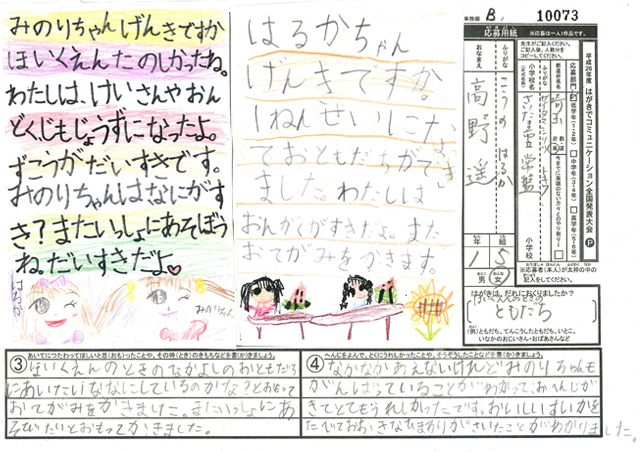 みのりちゃんげんきですか
ほいくえんたのしかったね。
わたしは、けいさんやおん
どくじもじょうずになったよ。
ずこうがだいすきです。
みのりちゃんはなにがす
き？またいっしょにあそぼう
ね。だいすきだよ♡
はるか
みのりちゃん
はるかちゃん
げんきですか。
1ねんせいになっ
ておともだちができ
ました。わたしは
おんがくがすきだよ。また
おてがみをかきます。
B
10073
応募用紙
※応募は一人一作品です。
平成26年度 はがきでコミュニケーション全国発表大会 P
応募部門
低学年(1・2年)
中学年(3・4年)
高学年(5・6年)
都道府県名
埼玉
小学校名
さいたま市立 常盤 小学校
ふりがな
こうの はるか
おなまえ
高野 遥
1年 5組
男 女
※応募者(本人)が太枠の中の
記入をしてください。
はがきは、だれにおくりましたか？
ほいくえんのときの
ともだち
(例)ともだち、てんこうしたともだち、いとこ、
いなかのおじいさん・おばあさんなど
③ あいてにつたわってほしいと思(おも)ったことや、その時(とき)のきもちなどを書(か)きましょう。
ほいくえんのときのなかよしのおともだち
にあいたいな、なにしているのかな？とおもって
おてがみをかきました。またいっしょにあ
そびたいとおもってかきました。
④ へんじをよんで、とくにうれしかったことや、そうぞうしたことなどを書(か)きましょう。
なかなかあえないけれどみのりちゃんも
がんばっていることがわかって、おへんじが
きてとてもうれしかったです。おいしいすいかを
たべておおきなひまわりがさいたことがわかりました。